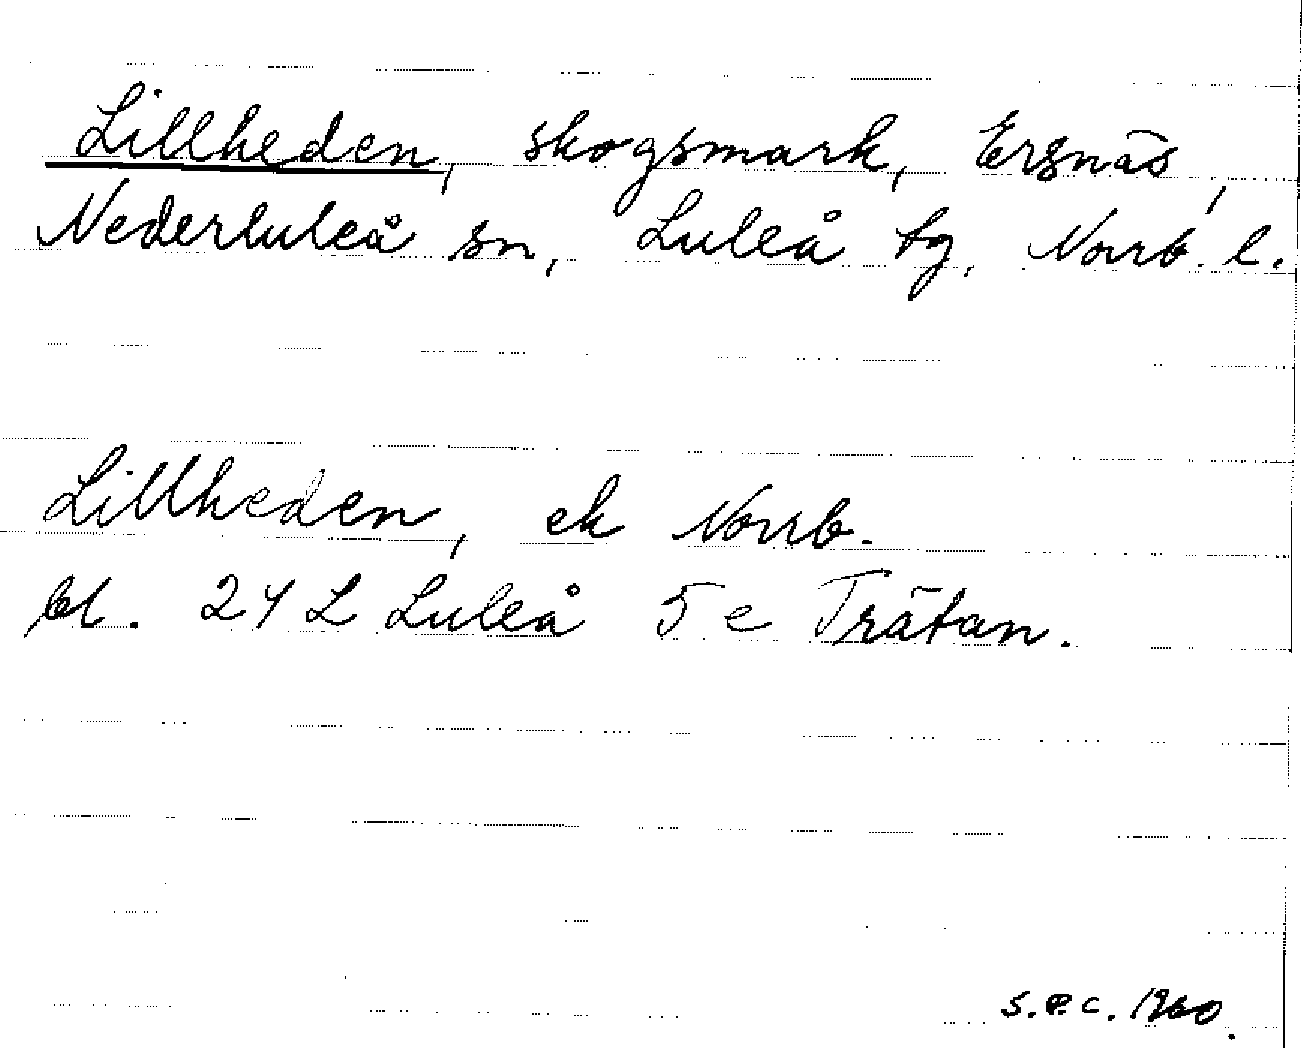 Lillheden, skogsmark, Ersnäs,
Nederluleå sn, Luleå tg, Norrb. l.
Lillheden, ek Norrb.
bl. 24 L Luleå 5 e Trätan.
S.E.C. 1960.